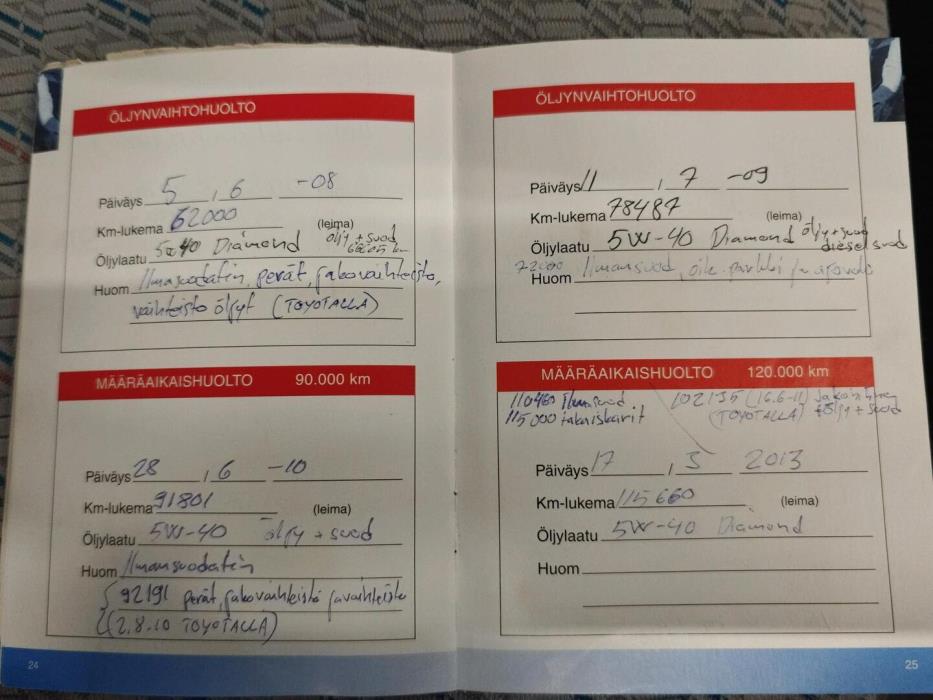 ÖLJYNVAIHTOHUOLTO
Päiväys 5 , 6 -08
Km-lukema 62000 (leima)
Öljylaatu 5w40 Diamond öljy + suod
Huom Ilmasuodatin, perät, jakovaihteisto,
vaihteisto öljyt (TOYOTALLA)
MÄÄRÄAIKAISHUOLTO 90.000 km
Päiväys 28 , 6 -10
Km-lukema 91801 (leima)
Öljylaatu 5W-40 öljy + suod
Huom Ilmansuodatin
92191 perät, jakovaihteisto ja vaihteisto
(2.8.10 TOYOTALLA)
24
ÖLJYNVAIHTOHUOLTO
Päiväys 11 , 7 -09
Km-lukema 78487 (leima)
Öljylaatu 5W-40 Diamond öljy+suod
diesel suod
Huom Ilmansuod, oik. parkki ja
MÄÄRÄAIKAISHUOLTO 120.000 km
110460 Ilmansuod 102135 (16.6-11)
115000 takaiskarit (TOYOTALLA) öljy + suod
Päiväys 17 , 5 2013
Km-lukema 115660 (leima)
Öljylaatu 5W-40 Diamond
Huom
25